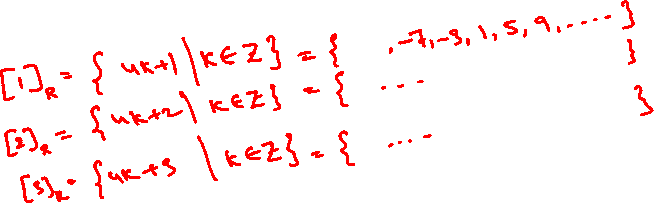 [1]_R = { 4k+1 | k∈Z } = { , -7, -3, 1, 5, 9, .... }
[2]_R = { 4k+2 | k∈Z } = { ... }
[3]_R = { 4k+3 | k∈Z } = { .... }